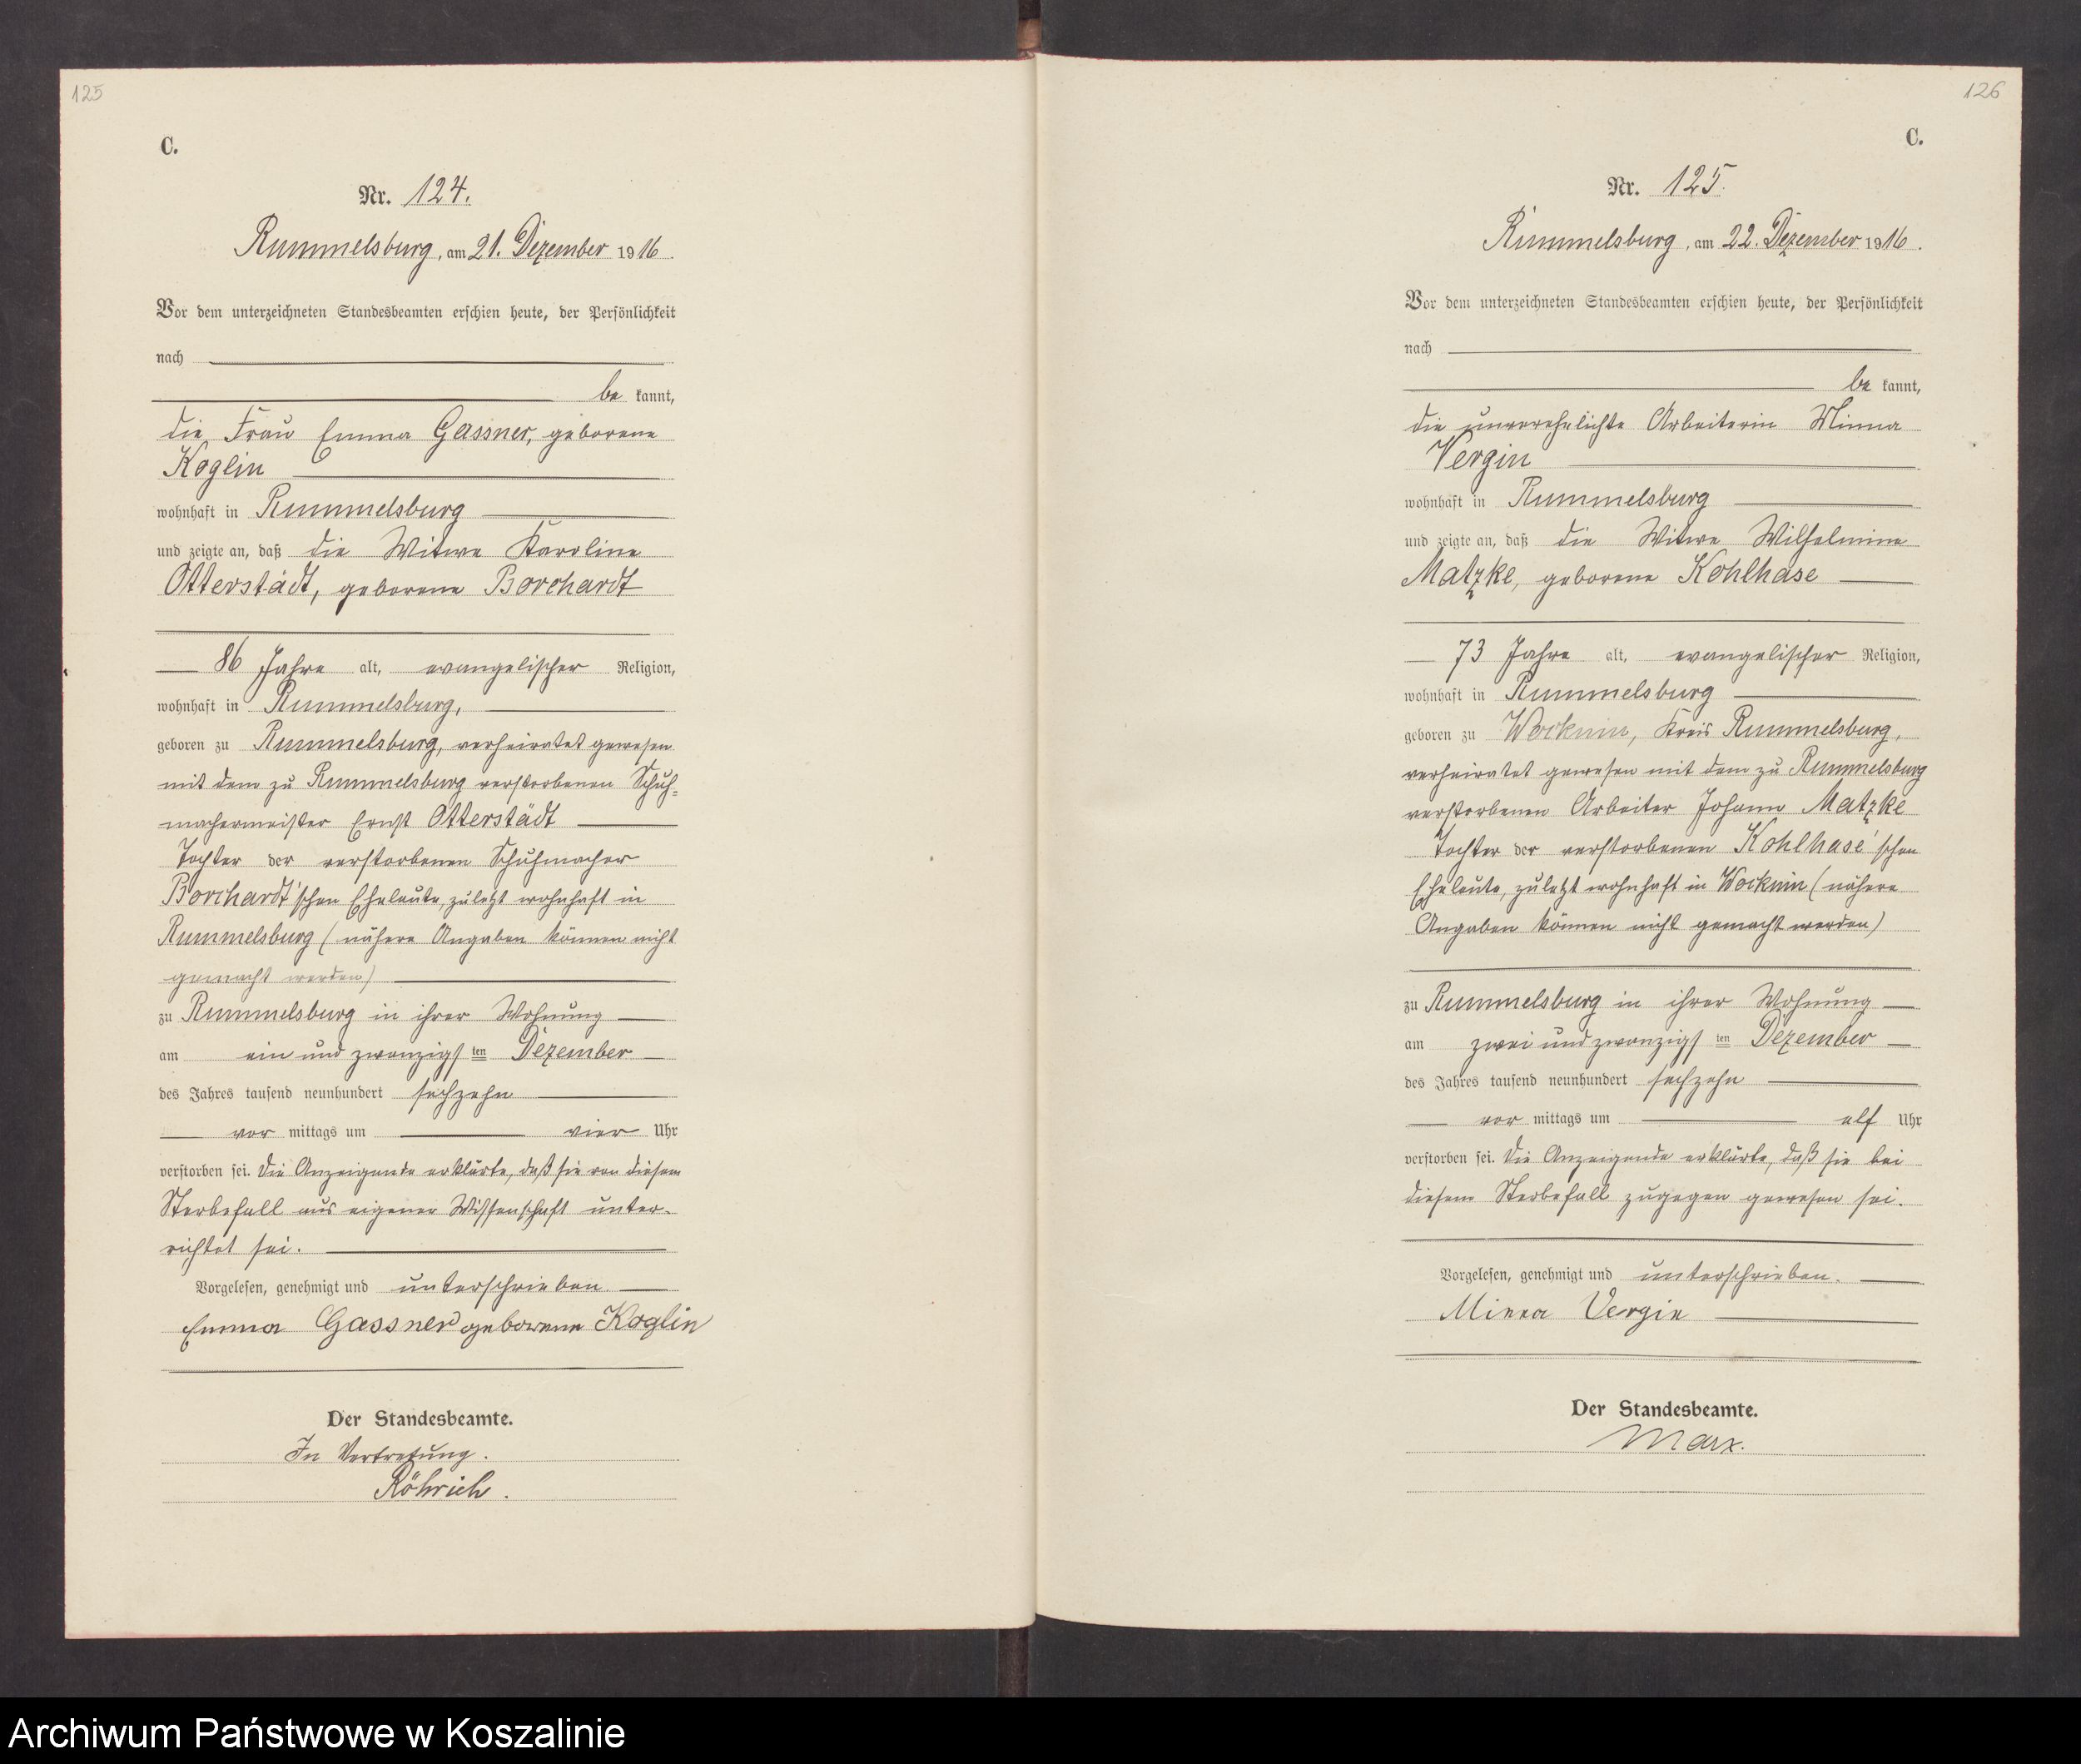 125
C.
Nr. 124.
Rummelsburg, am 21. Dezember 1916.
Vor dem unterzeichneten Standesbeamten erschien heute, der Persönlichkeit
nach
be kannt,
die Frau Emma Gassner, geborene
Koglin
wohnhaft in Rummelsburg
und zeigte an, daß die Witwe Karoline
Otterstädt, geborene Borchardt
86 Jahre alt, evangelischer Religion,
wohnhaft in Rummelsburg,
geboren zu Rummelsburg, verheiratet gewesen
mit dem zu Rummelsburg verstorbenen Schuh=
machermeister Ernst Otterstädt
Tochter der verstorbenen Schuhmacher
Borchardt'schen Eheleute, zuletzt wohnhaft in
Rummelsburg (nähere Angaben können nicht
gemacht werden)
zu Rummelsburg in ihrer Wohnung
am ein und zwanzigs ten Dezember
des Jahres tausend neunhundert sechzehn
vor mittags um vier Uhr
verstorben sei. Die Anzeigende erklärte, daß sie von diesem
Sterbefall aus eigener Wissenschaft unter-
richtet sei.
Vorgelesen, genehmigt und unterschrieben
Emma Gassner geborene Koglin
Der Standesbeamte.
In Vertretung.
Röhrich.
126
C.
Nr. 125.
Rummelsburg, am 22. Dezember 1916.
Vor dem unterzeichneten Standesbeamten erschien heute, der Persönlichkeit
nach
be kannt,
die unverehelichte Arbeiterin Minna
Vergin
wohnhaft in Rummelsburg
und zeigte an, daß die Witwe Wilhelmine
Matzke, geborene Kohlhase
73 Jahre alt, evangelischer Religion,
wohnhaft in Rummelsburg
geboren zu Wocknin, Kreis Rummelsburg,
verheiratet gewesen mit dem zu Rummelsburg
verstorbenen Arbeiter Johann Matzke
Tochter der verstorbenen Kohlhase'schen
Eheleute, zuletzt wohnhaft in Wocknin (nähere
Angaben können nicht gemacht werden)
zu Rummelsburg in ihrer Wohnung
am zwei und zwanzigs ten Dezember
des Jahres tausend neunhundert sechzehn
vor mittags um elf Uhr
verstorben sei. Die Anzeigende erklärte, daß sie bei
diesem Sterbefall zugegen gewesen sei.
Vorgelesen, genehmigt und unterschrieben.
Minna Vergin
Der Standesbeamte.
Marx.
Archiwum Państwowe w Koszalinie